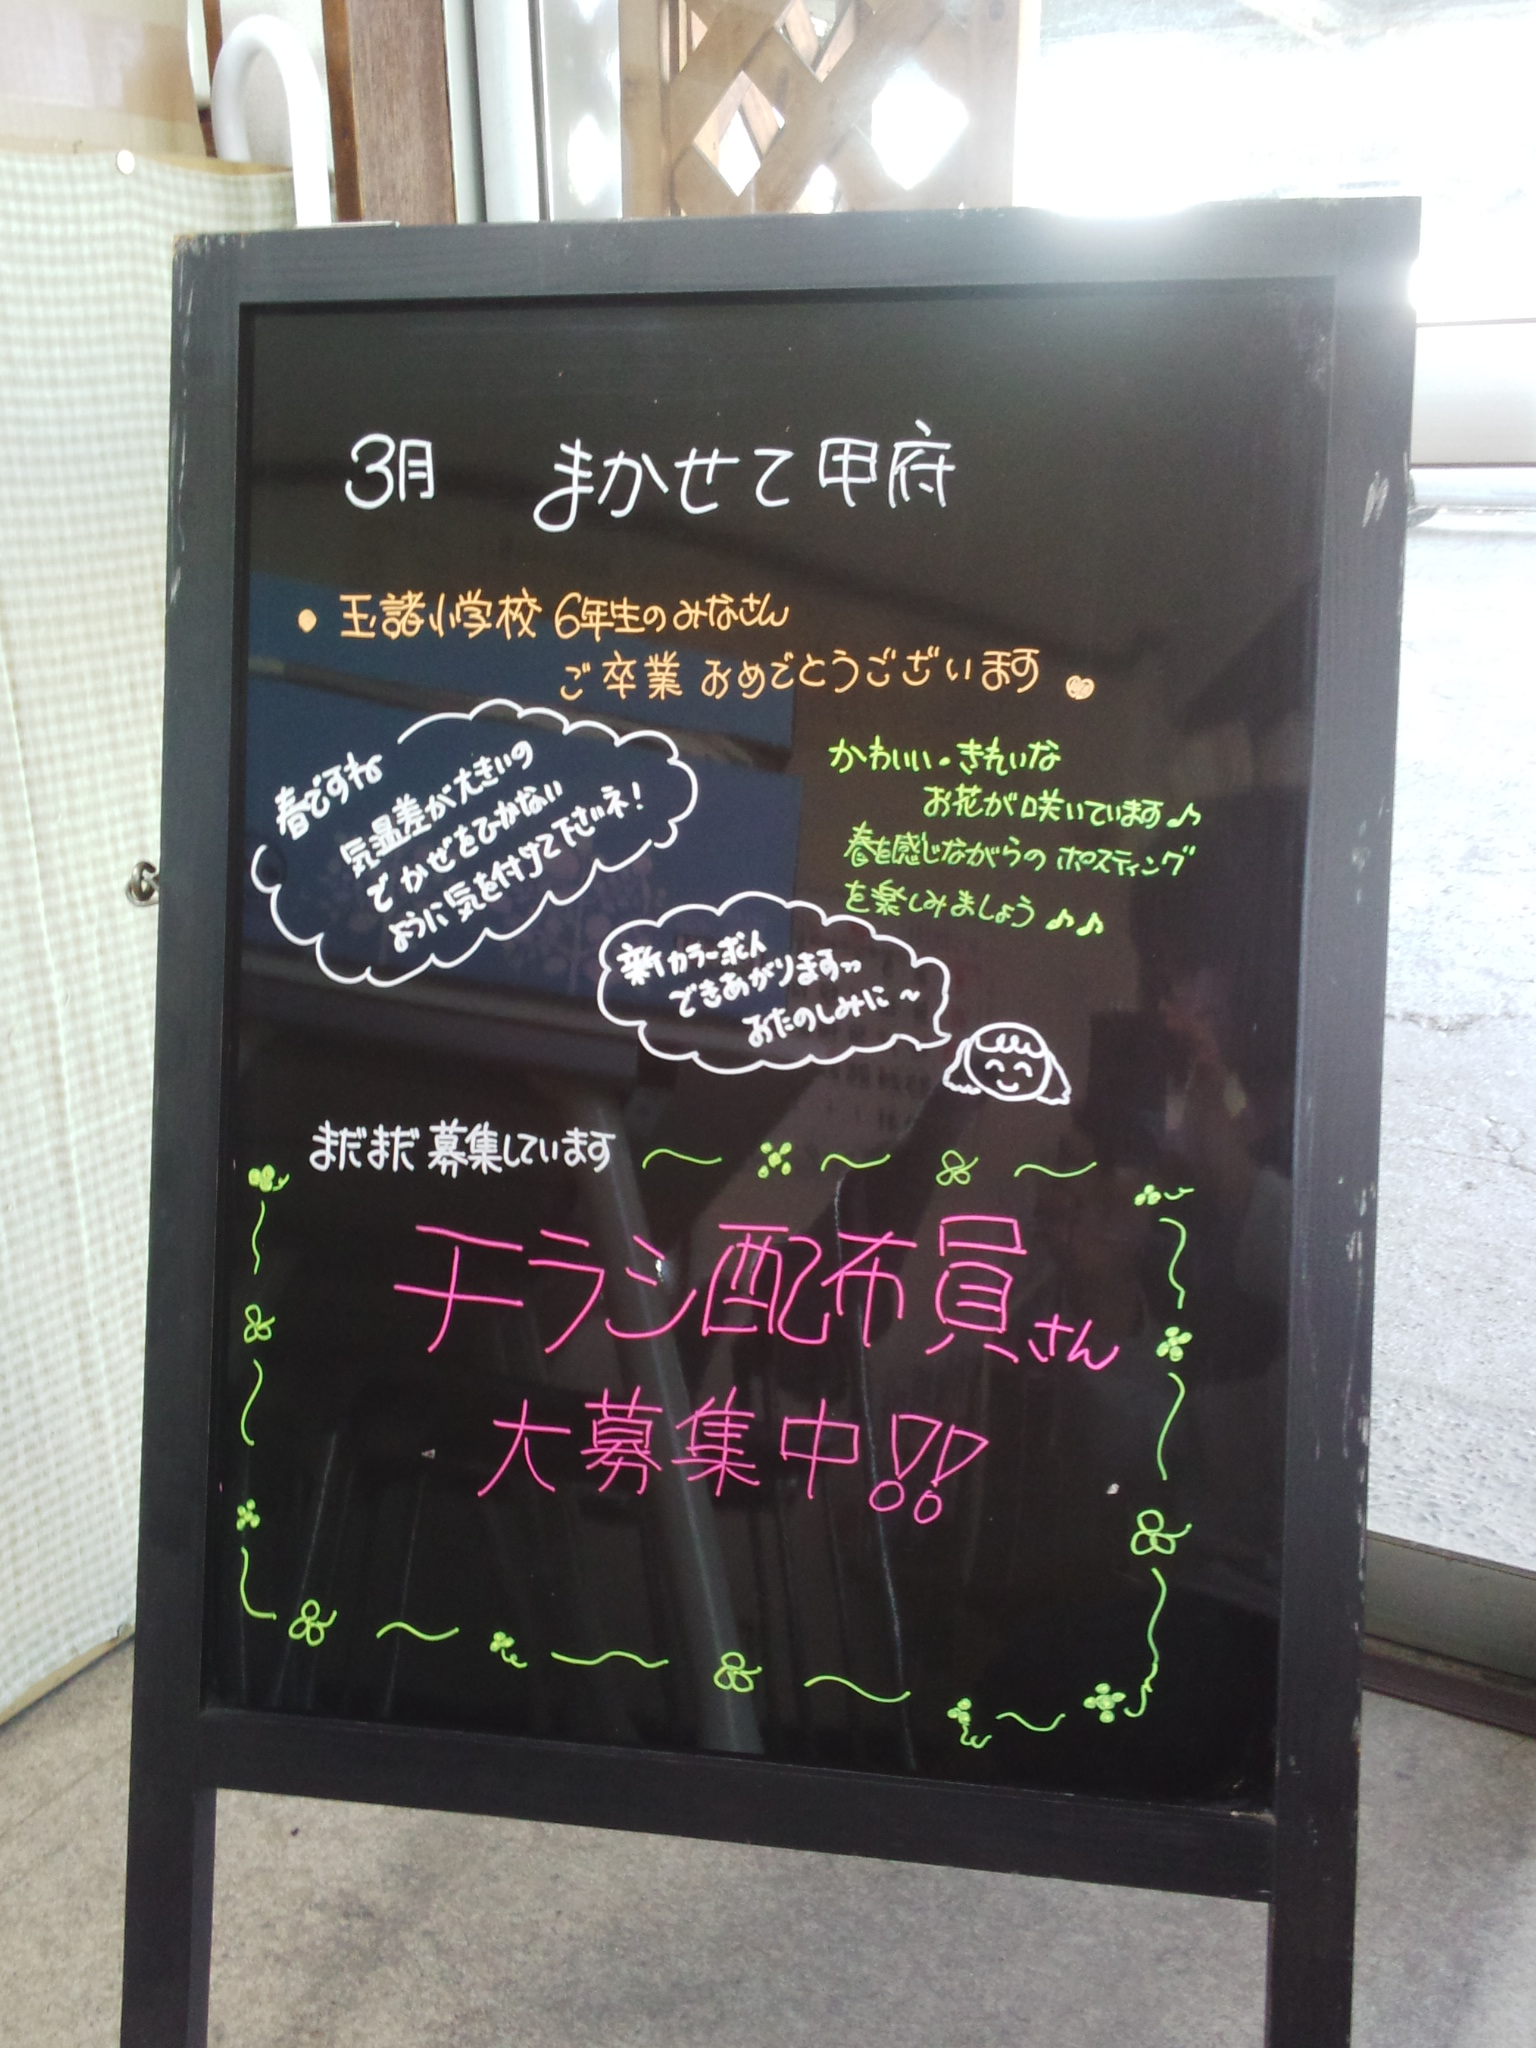 3月 まかせて甲府
• 玉諸小学校 6年生のみなさん
ご卒業 おめでとうございます
春ですね
気温差が大きいの
でかぜをひかない
ように気を付けて下さいネ!
かわいい・きれいな
お花が咲いています♪
春を感じながらのポスティング
を楽しみましょう♪♪
新カラー求人
できあがります››
おたのしみに~
まだまだ募集しています
チラシ配布員さん
大募集中!!